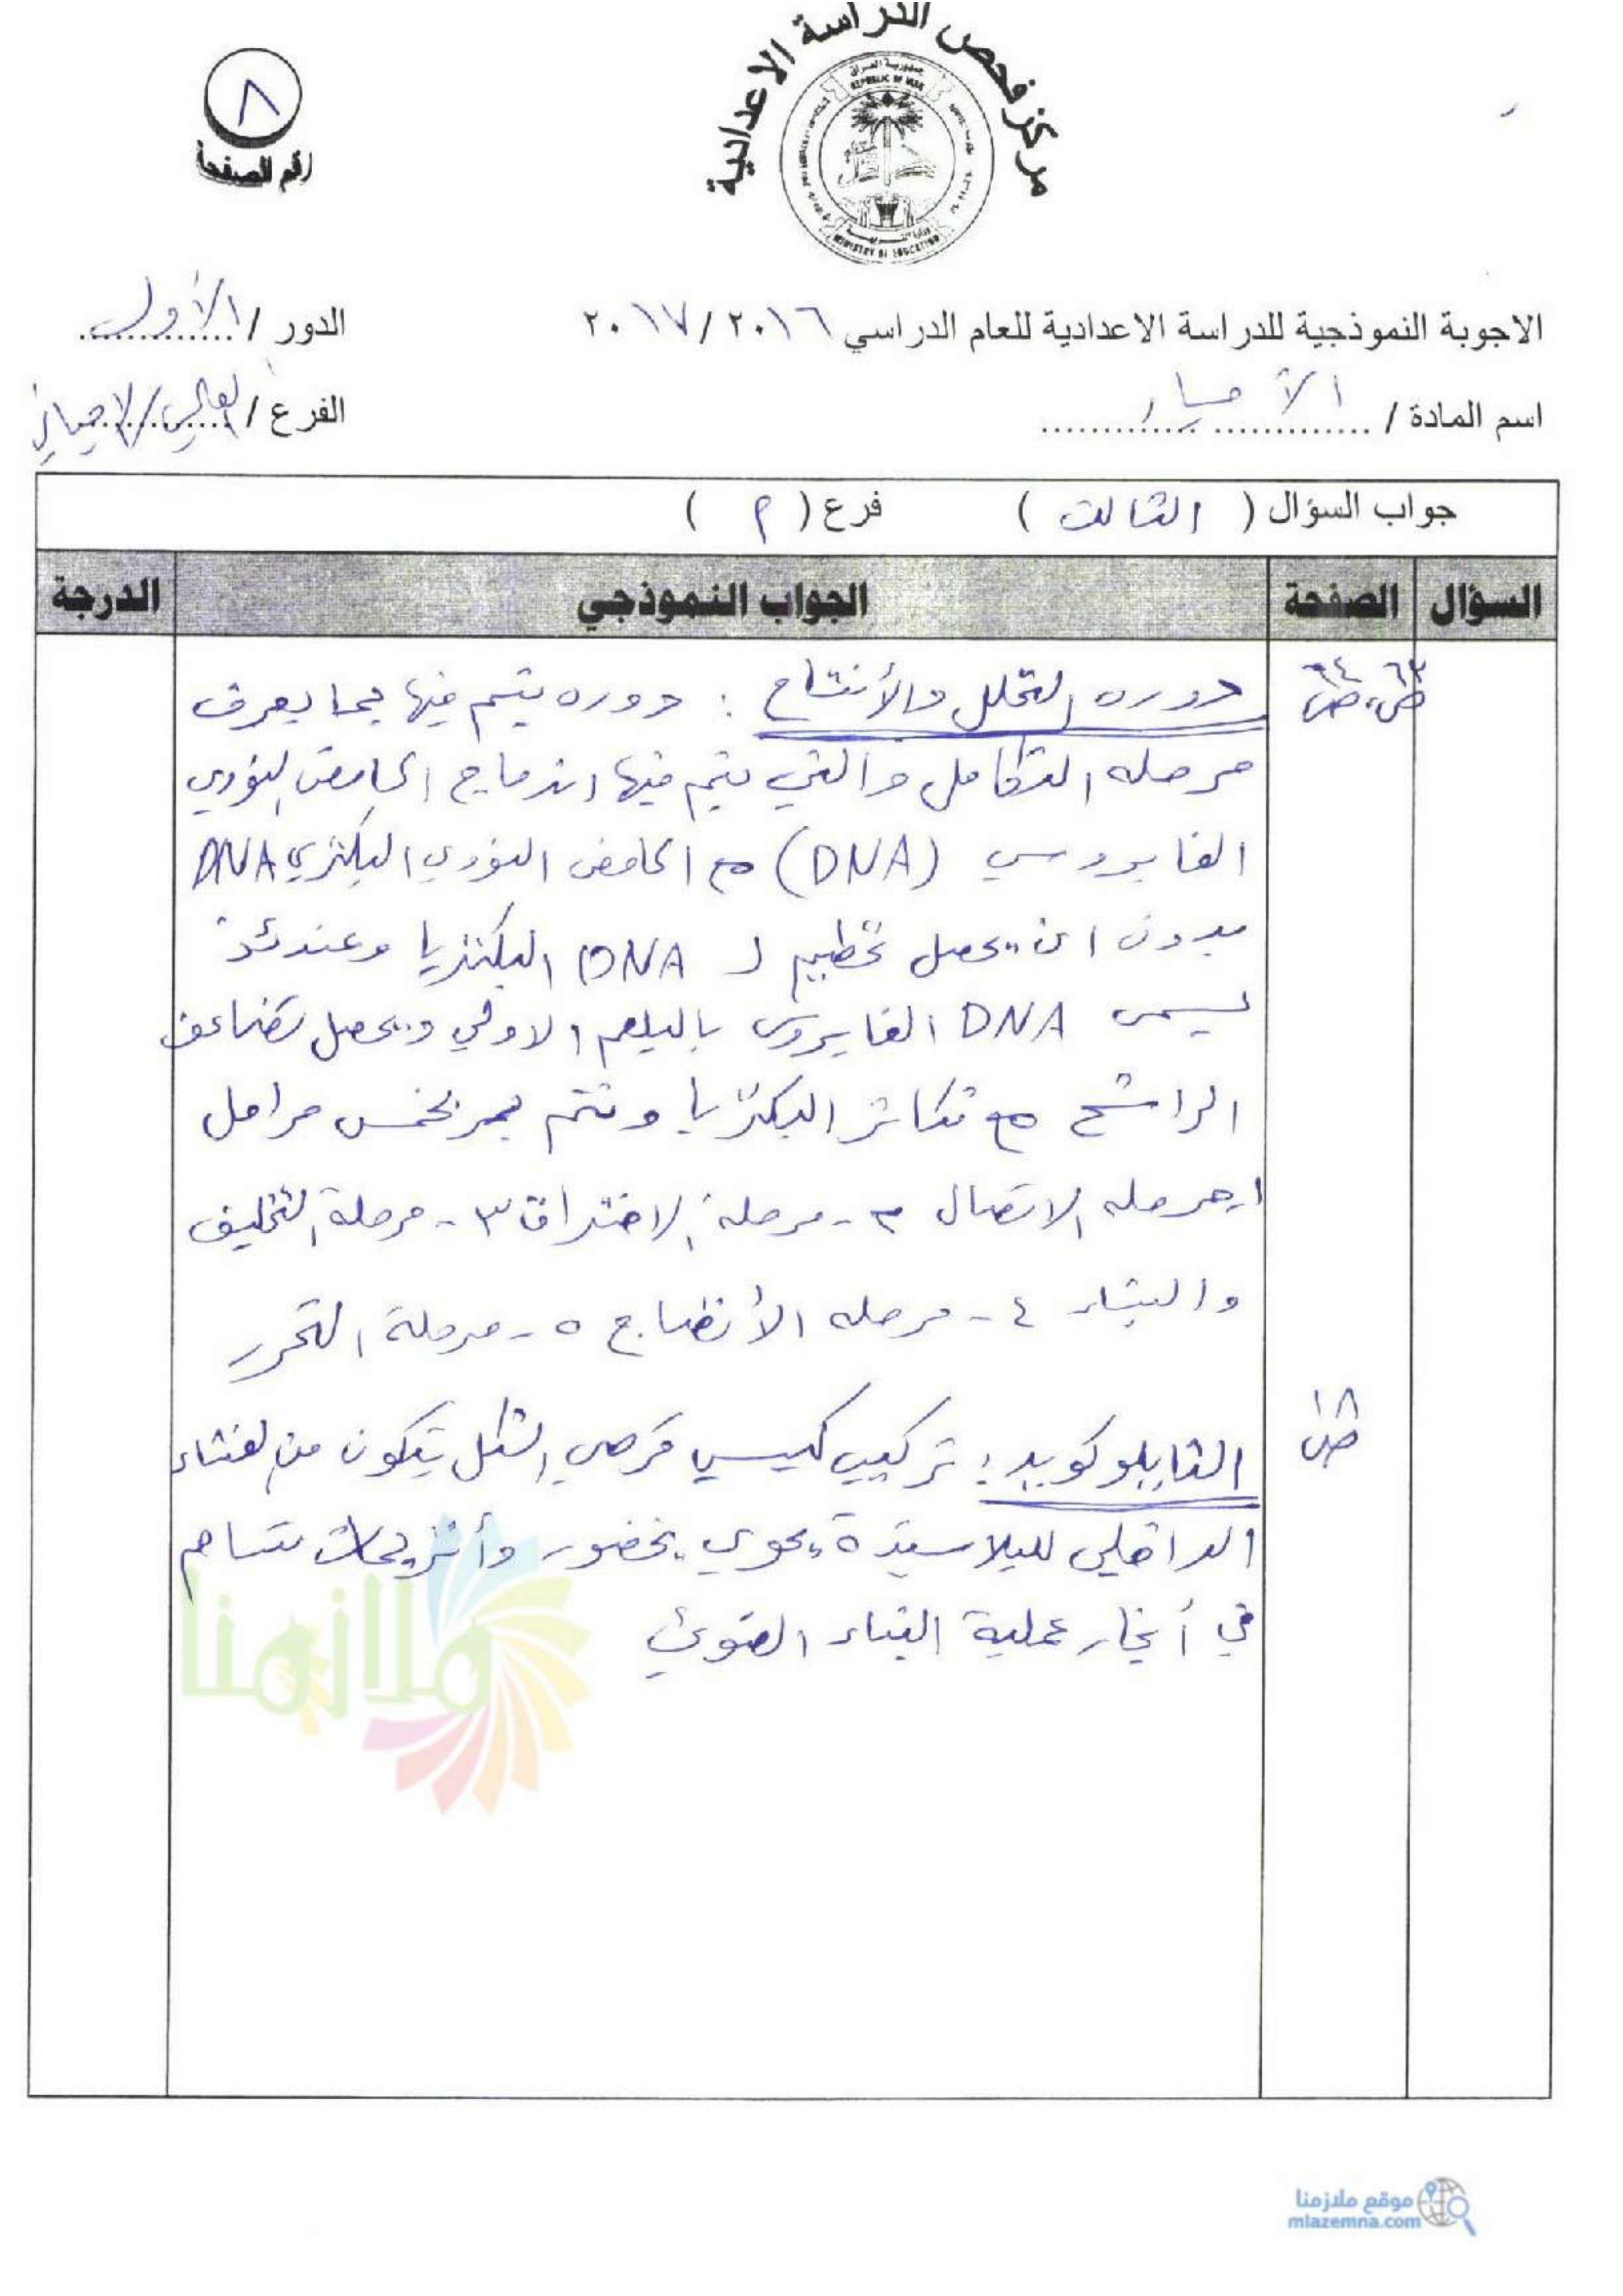 مركز فحص الدراسة الاعدادية
جمهورية العراق
REPUBLIC OF IRAQ
MINISTRY OF EDUCATION
٨
رقم الصفحة
الاجوبة النموذجية للدراسة الاعدادية للعام الدراسي ٢٠١٦ / ٢٠١٧
الدور / الأول
اسم المادة / الأحياء
الفرع / العلمي/الاحيائي
جواب السؤال ( الثالث ) فرع ( م )
السؤال الصفحة الجواب النموذجي الدرجة
ص٦٣، ص٦٤
دوره التحلل والأنتاج : دوره يتم فيها بما يعرف
مرحله التكامل والتي يتم فيها اندماج الحامض النووي
الفايروسي (DNA) مع الحامض النووي البكتري DNA
بدون ان يحصل تحطيم لـ DNA البكتريا وعندئذ
يسمى DNA الفايروس بالبلعم الاولي ويحصل تضاعف
الراشح مع تكاثر البكتريا وتتم بخمس مراحل
١-مرحله الاتصال ٢- مرحلة الاختراق ٣- مرحلة التخليف
والبناء ٤- مرحله الأنضاج ٥- مرحلة التحرر
ص١٨
الثايلوكويد : تركيب كيسي قرصي الشكل يتكون من الغشاء
الداخلي للبلاستيدة يحوي يخضور وأنزيمات تساهم
في أنجاز عملية البناء الضوئي
ملازمنا
موقع ملازمنا
mlazemna.com